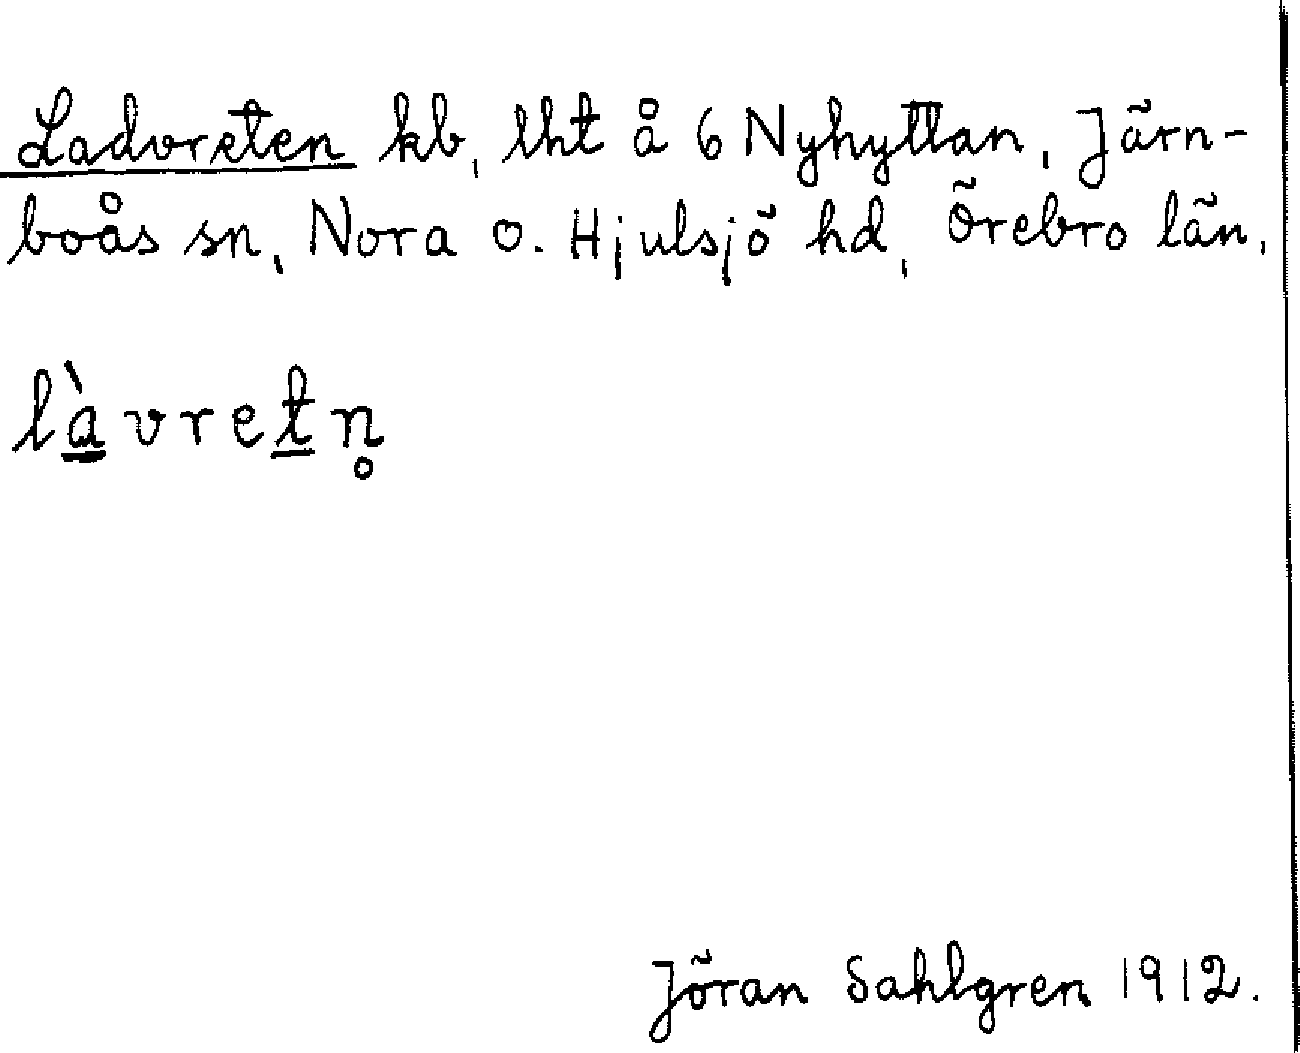 Ladvreten kb, lht å 6 Nyhyttan, Järn-
boås sn, Nora o. Hjulsjö hd, Örebro län,
là̱vreṯn̥
Jöran Sahlgren 1912.